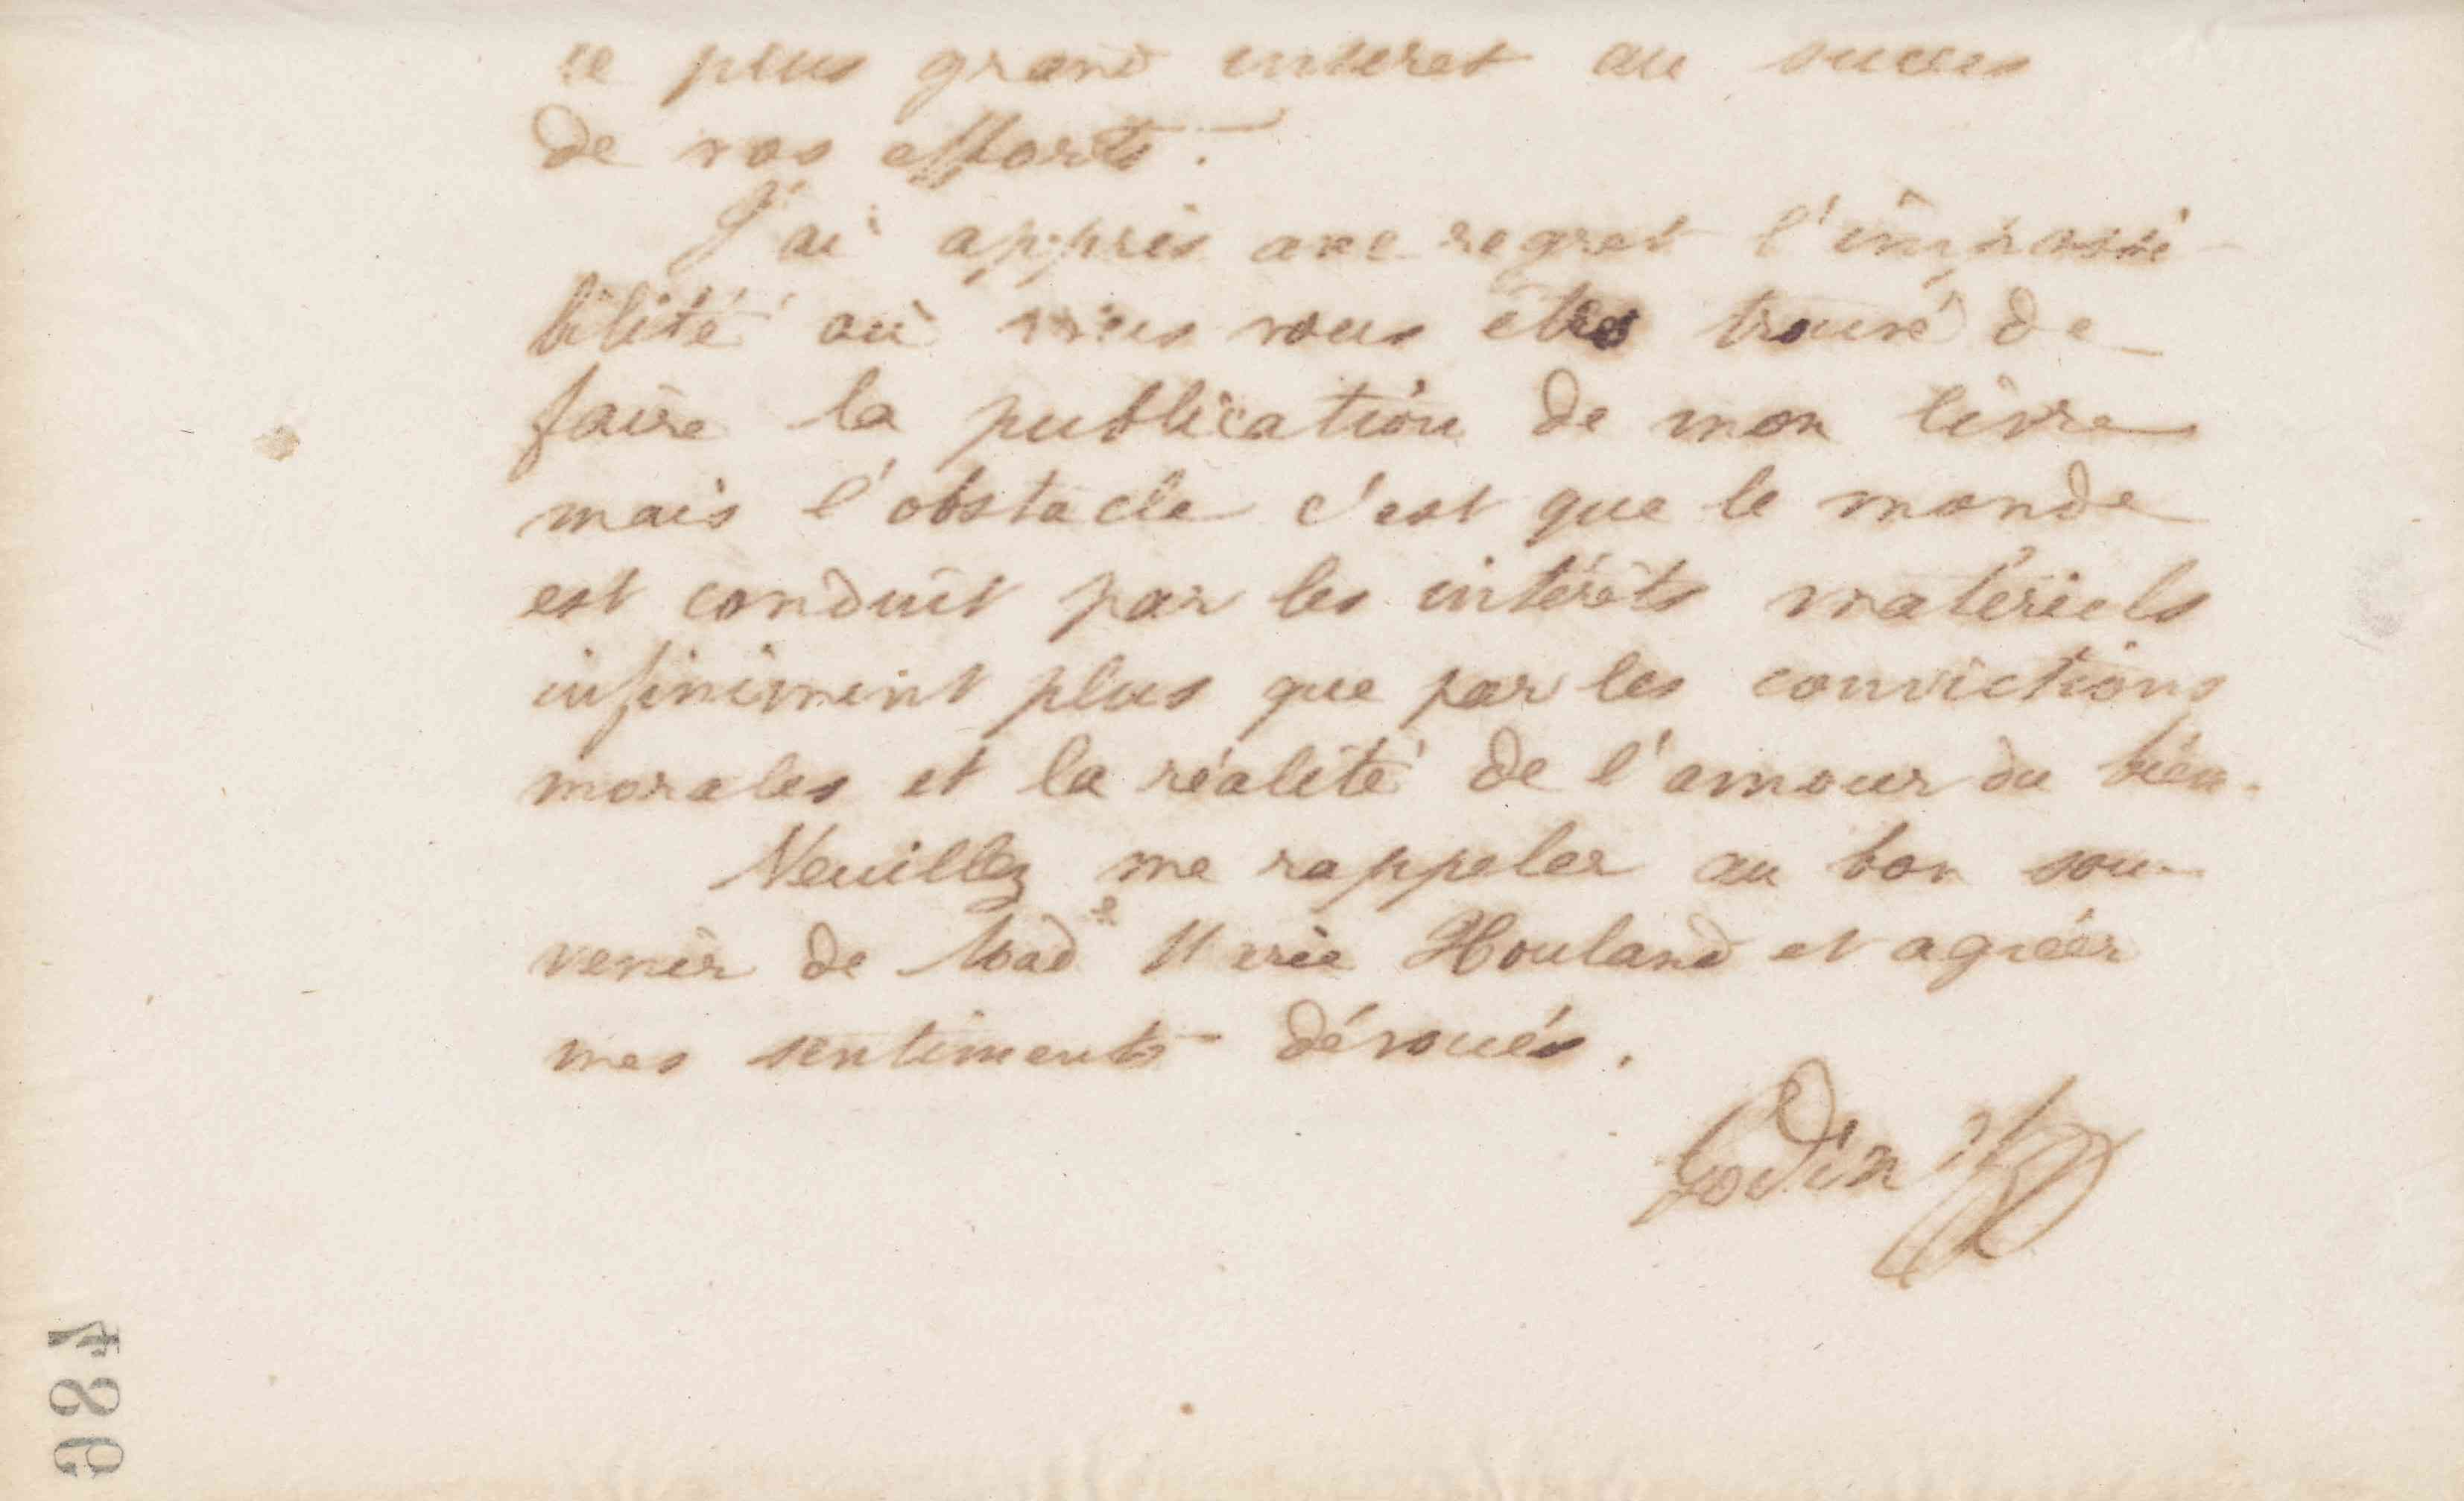 le plus grand intérêt au succès
de vos efforts.
J'ai appris avec regret l'impossi-
bilité où vous vous êtes trouvé de
faire la publication de mon livre
mais l'obstacle c'est que le monde
est conduit par les intérêts matériels
infiniment plus que par les convictions
morales et la réalité de l'amour du bien.
Veuillez me rappeler au bon sou-
venir de Made Marie Houland et agréer
mes sentiments dévoués.
Godin
486